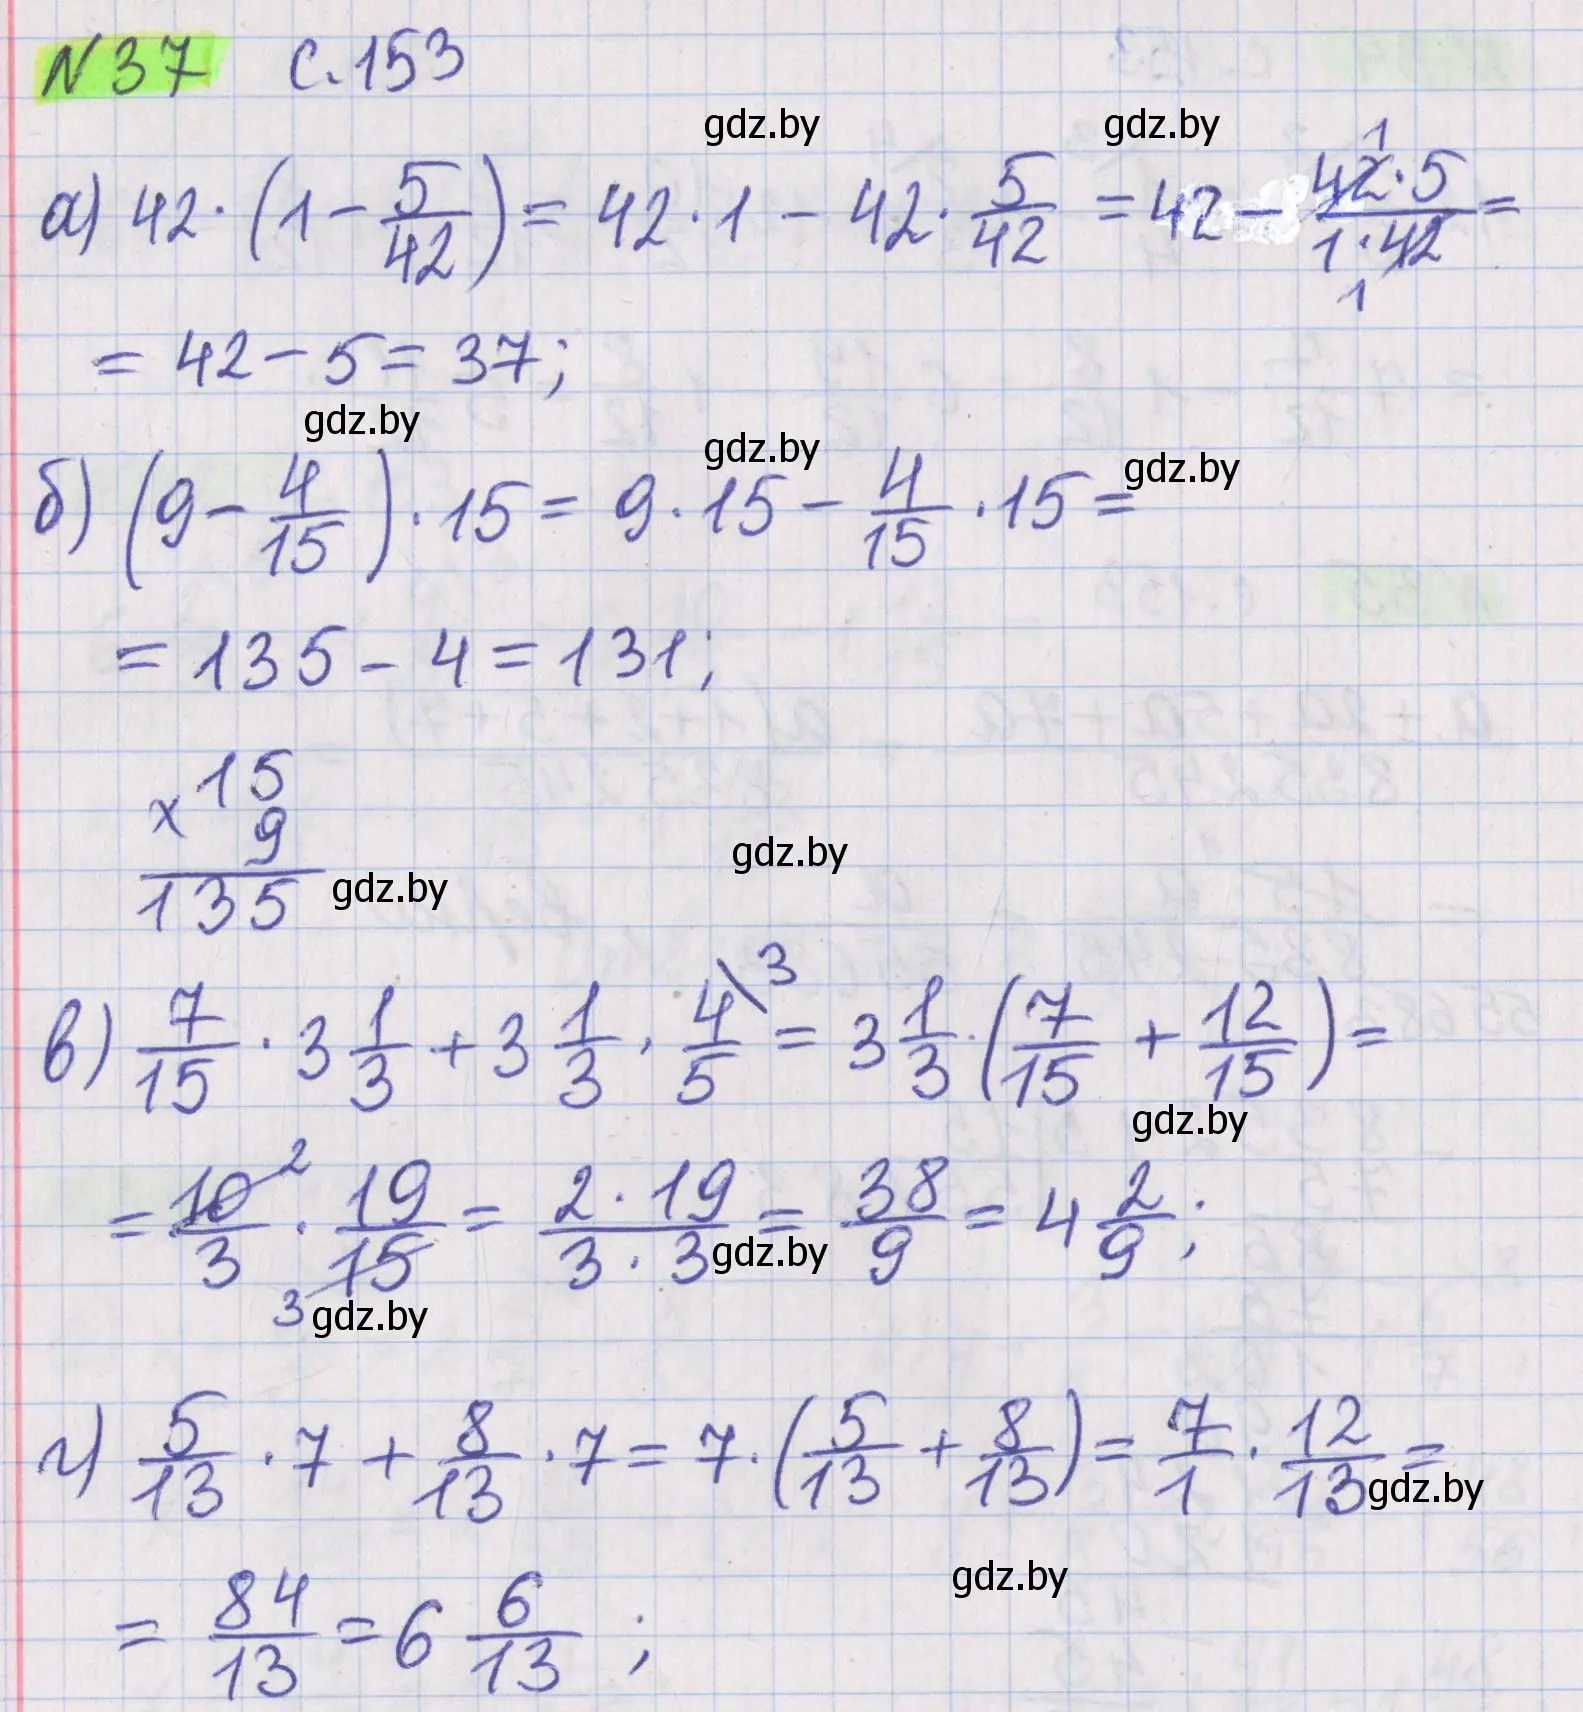 N37 с.153
gdz.by gdz.by
а) 42·(1 - 5/42) = 42·1 - 42·5/42 = 42 - 42·5/1·42 = 1 1
= 42 - 5 = 37;
gdz.by gdz.by gdz.by
б) (9 - 4/15)·15 = 9·15 - 4/15·15 =
= 135 - 4 = 131;
x 15
9
gdz.by
135 gdz.by
в) 7/15·3 1/3 + 3 1/3·4/5 \3 = 3 1/3·(7/15 + 12/15) =
gdz.by
= 10/3 2·19/15 3 = 2·19/3·3 = 38/9 = 4 2/9;
gdz.by
gdz.by
г) 5/13·7 + 8/13·7 = 7·(5/13 + 8/13) = 7/1·12/13 =
gdz.by
gdz.by
= 84/13 = 6 6/13;